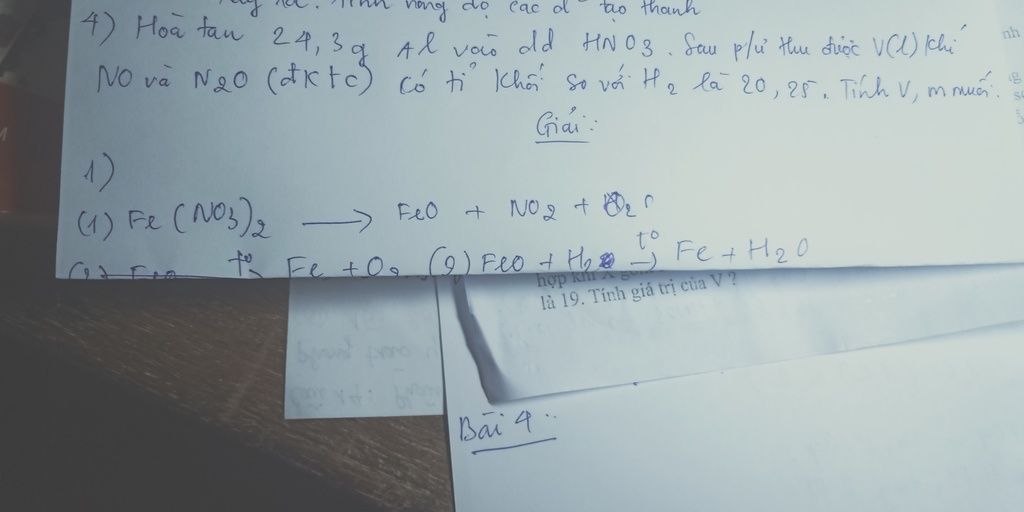 Tính nồng độ các d² tạo thành
4) Hoà tan 24,3g Al vào dd HNO3. Sau p/ứ thu được V(l) khí
NO và N2O (đktc) có tỉ khối so với H2 là 20,25. Tính V, m muối.
Giải:
1)
(1) Fe(NO3)2 → FeO + NO2 + O2
Fe + O2 (2) FeO + H2 t° → Fe + H2O
là 19. Tính giá trị của V ?
Bài 4: